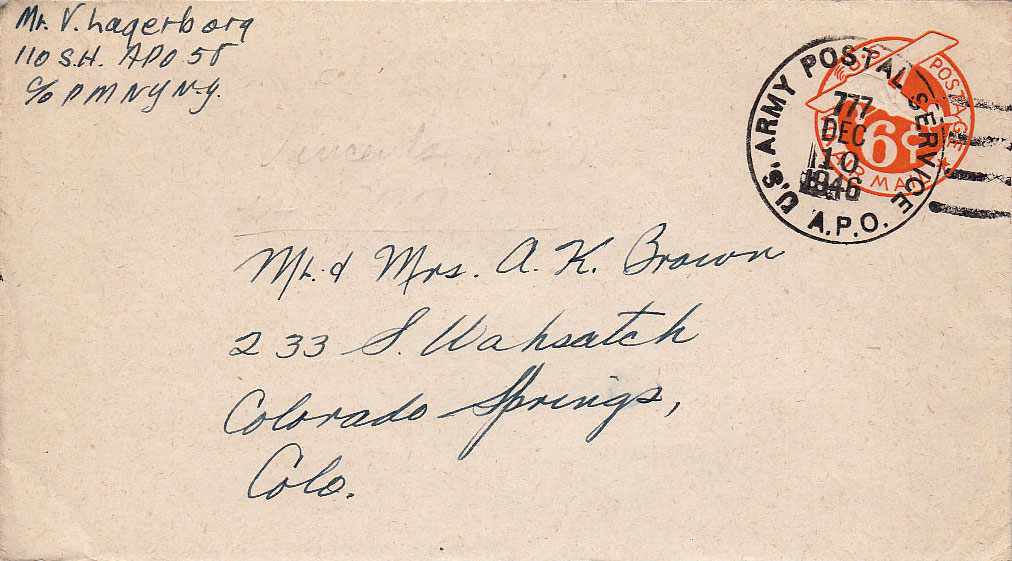 Mr. V. Lagerborg
110 S.H. APO 58
c/o P M N Y N.Y.
U.S. ARMY POSTAL SERVICE A.P.O.
777
DEC
10
1946
U.S. POSTAGE
6¢
AIR MAIL
Mr. & Mrs. A. K. Brown
233 S. Wahsatch
Colorado Springs,
Colo.